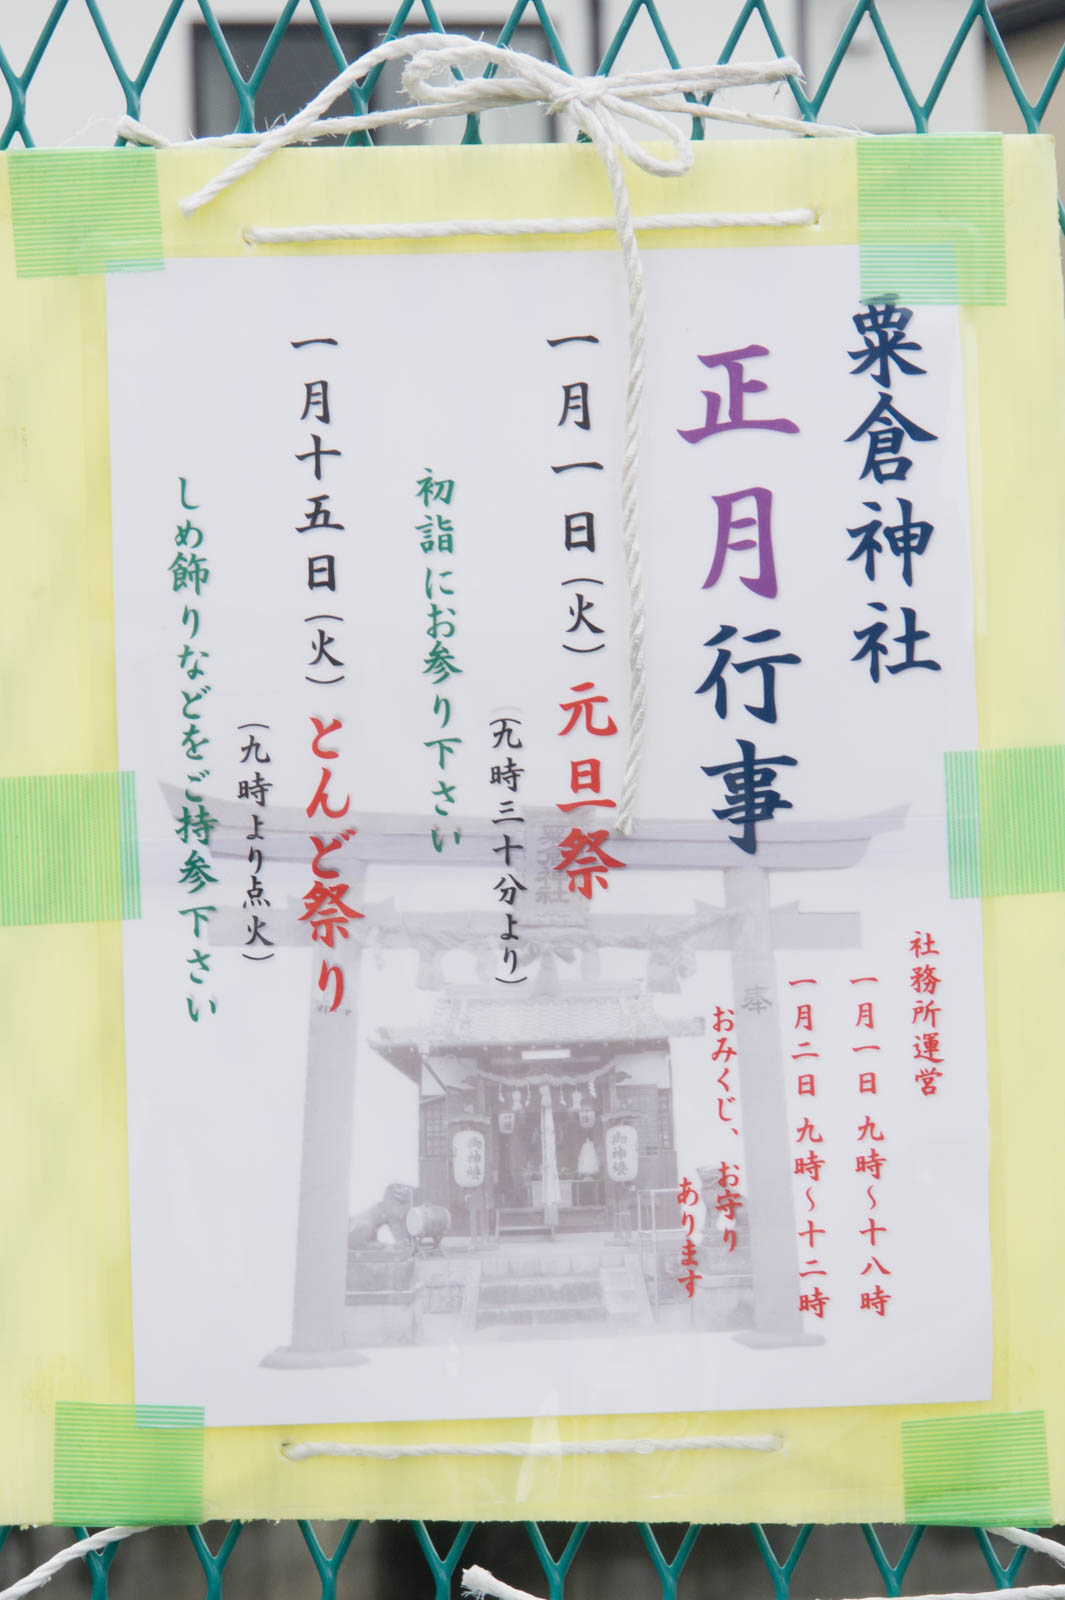 粟倉神社
正月行事
一月一日(火)元旦祭
(九時三十分より)
初詣にお参り下さい
一月十五日(火)とんど祭り
(九時より点火)
しめ飾りなどをご持参下さい
社務所運営
一月一日 九時～十八時
一月二日 九時～十二時
おみくじ、お守り
あります
奉
御神燈
御神燈